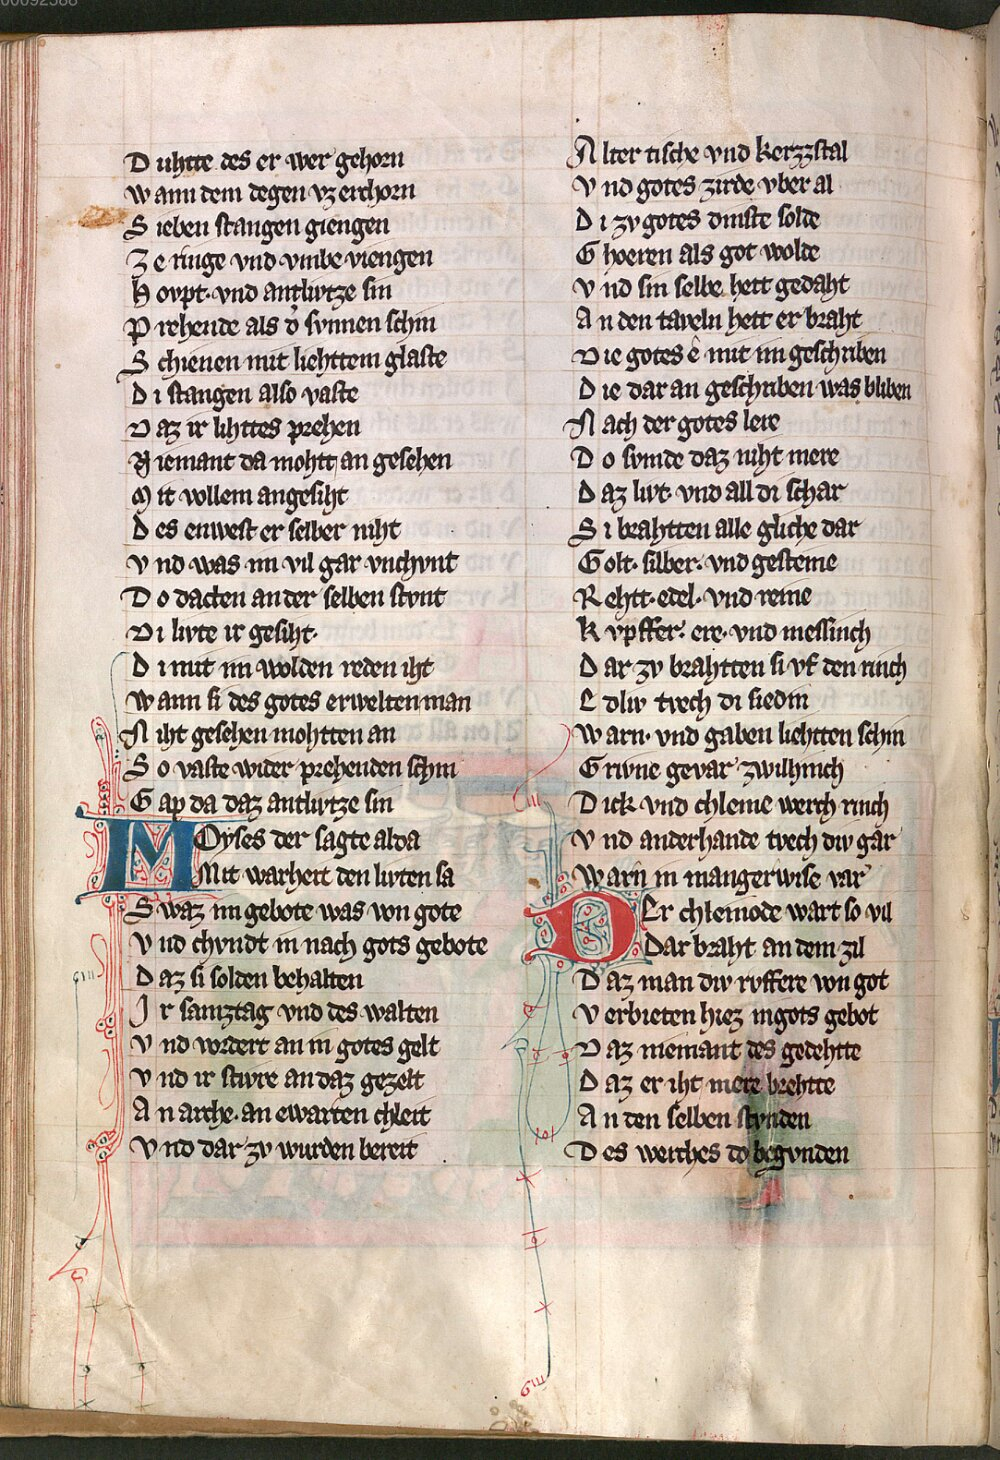 00092588
D uhtte des er wer gehorn
W ann dem degen vz erchorn
S ieben stangen giengen
Z e ringe vnd vmbe viengen
H ovpt· vnd antlvtze sin
P rehende als d͛ svnnen schin
S chienen mit liehttem glaste
D i stangen also vaste
D az ir lihttes prehen
N iemant da mohtt an gesehen
M it vollem angesiht
D es enwest er selber niht
V nd was im vil gar vnchvnt
D o dacten an der selben stvnt
D i livte ir gesiht·
D i mit im wolden reden iht
W ann si des gotes erwelten man
N iht gesehen mohtten an
S o vaste wider prehenden schin
G ap da daz antlvtze sin
MOyses der sagte alda
Mit warheit den livten sa
S waz im gebote was von gote
V nd chvndt in nach gots gebote
D az si solden behalten
I r samztag vnd des walten
V nd vordert an in gotes gelt
V nd ir stivre an daz gezelt
A n arche· an ewarten chleit
V nd dar zv wurden bereit
A lter tische vnd kerzzstal
V nd gotes zirde vber al
D i zv gotes dinste solde
G hoeren als got wolde
V nd sin selbe hett gedaht
A n den taveln hett er braht
D ie gotes ê mit im geschriben
D ie dar an geschriben was bliben
N ach der gotes lere
D o svmde daz niht mere
D az livt· vnd all di schar
S i brahtten alle gliche dar
G olt· silber· vnd gesteine
R ehtt· edel· vnd reine
K vpffer· ere· vnd messinch
D ar zv brahtten si vf den rinch
E dliv tvech di siedin
W arn· vnd gaben liehtten schin
G rivne gevar zwilhinch
D ick vnd chleine werch rinch
V nd anderhande tvech div gar
W arn in manger wise var
DEr chleinode wart so vil
Dar braht an dem zil
D az man div rvffere von got
V erbieten hiez in gots gebot
D az niemant des gedehtte
D az er iht mere brehtte
A n den selben stvnden
D es werches do begvnden